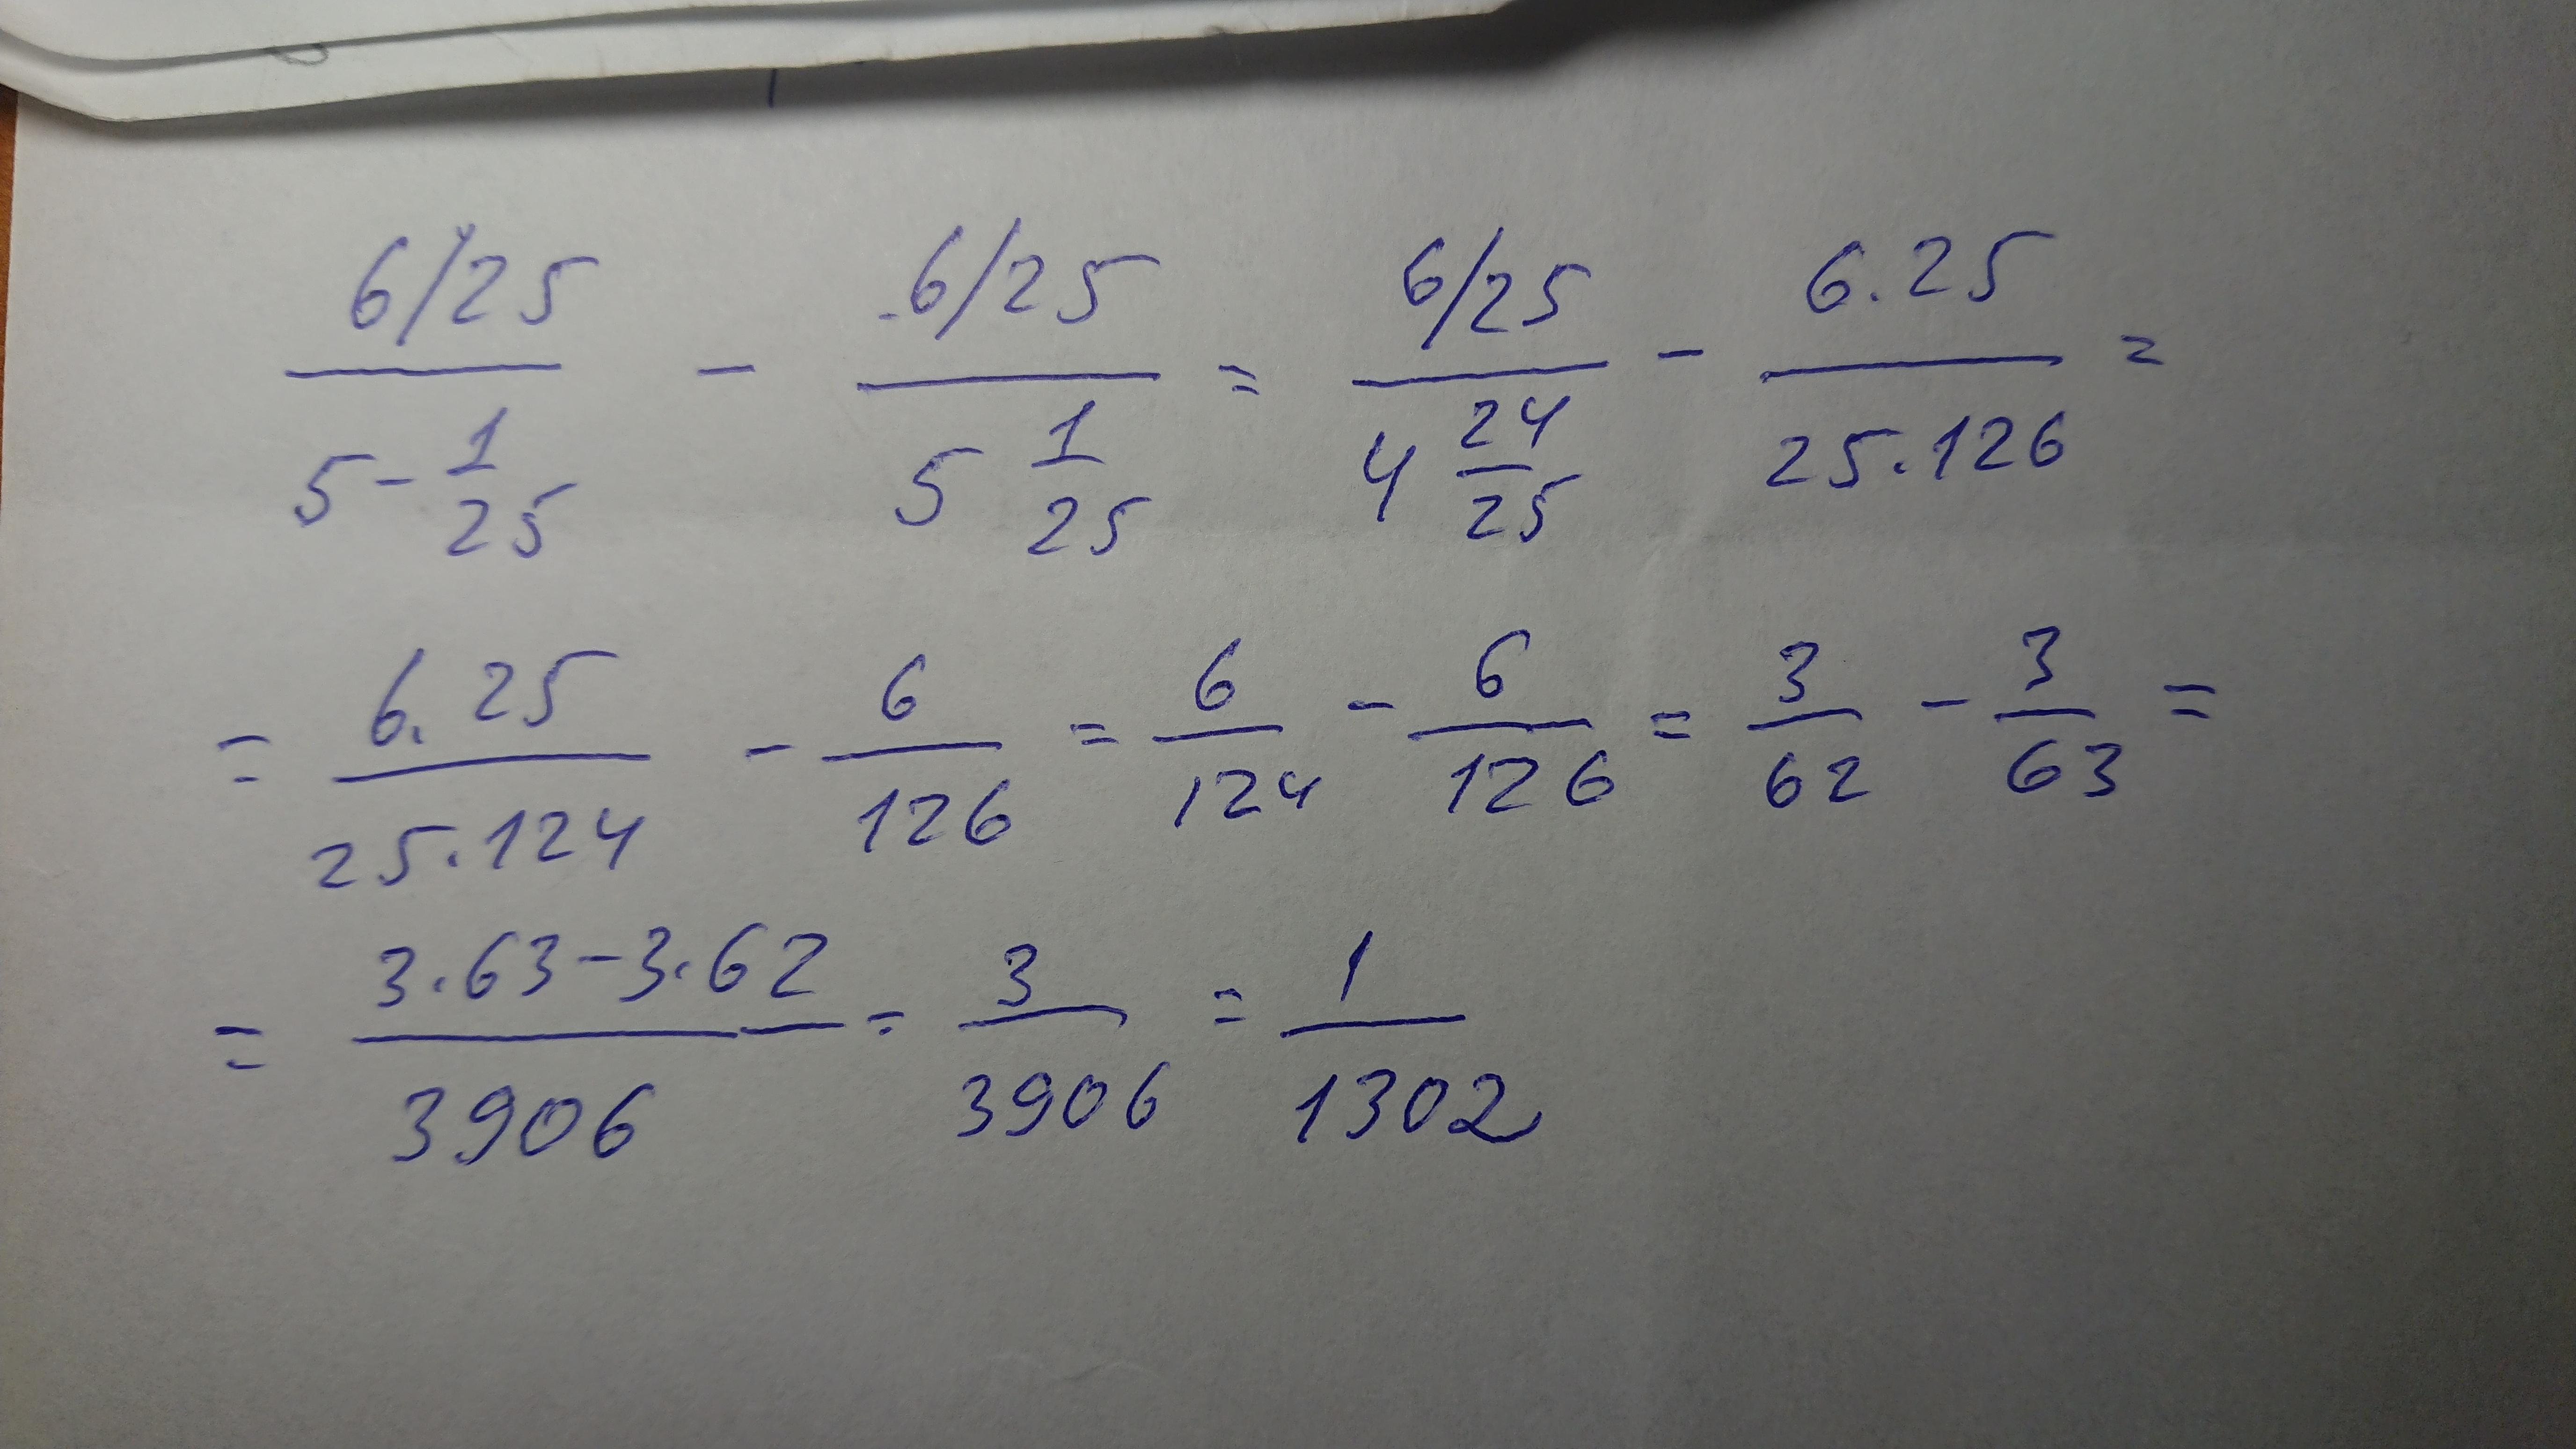 (6/25)/(5 - 1/25) - (6/25)/(5 1/25) = (6/25)/(4 24/25) - (6.25)/(25.126) =
= (6.25)/(25.124) - 6/126 = 6/124 - 6/126 = 3/62 - 3/63 =
= (3.63-3.62)/3906 = 3/3906 = 1/1302